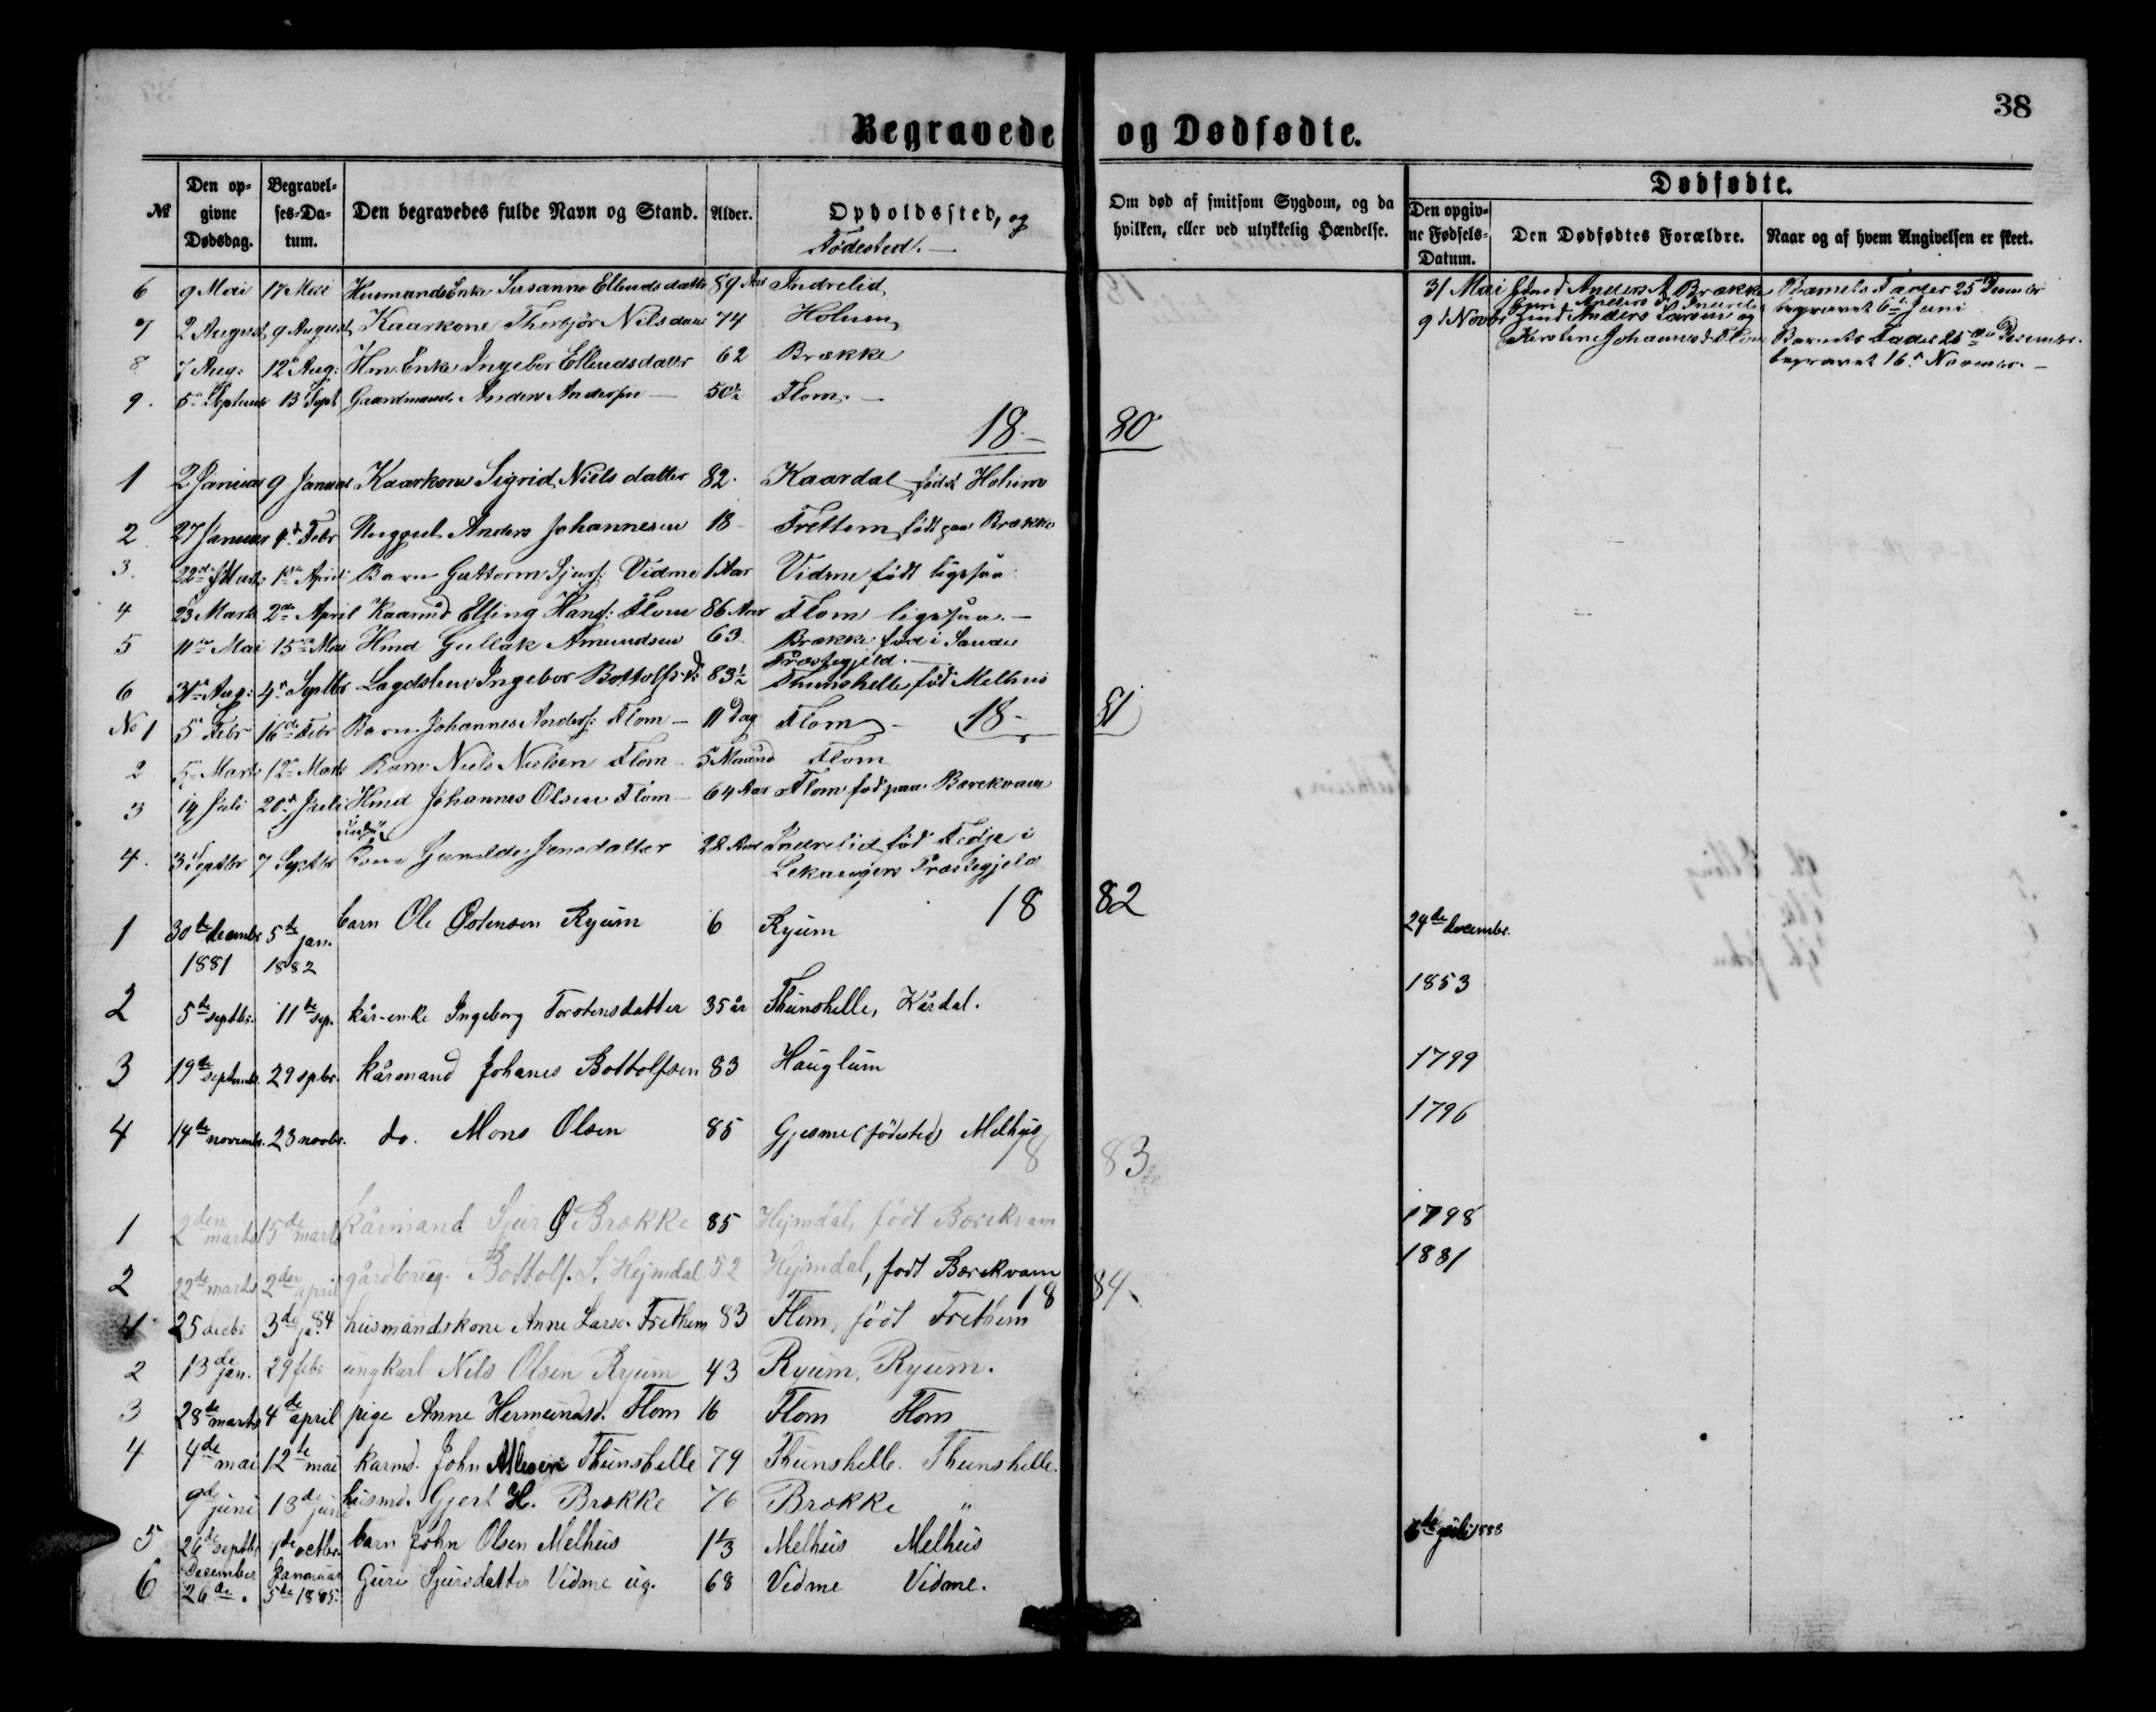 38
Begravede og Dødfødte.
№
Den opgivne Dødsdag.
Begravelses-Datum.
Den begravedes fulde Navn og Stand.
Alder.
Opholdssted, og Fødested.
Om død af smitsom Sygdom, og da hvilken, eller ved ulykkelig Hændelse.
Dødfødte.
Den opgivne Fødsels-Datum.
Den Dødfødtes Forældre.
Naar og af hvem Angivelsen er skeet.
6 9 Mai 17 Mai Husmands Enke Susanne Ellendsdatter 89 Aar Indrelid
31 Mai Anders A Brække Barnets Fader 25 December
begravet 6te Juni
7 2 August 9 August Kaarkone Thorbjør Nilsdatter 74 Holum
9d Novbr Hmd Anders Larsen og
Kirstine Johannesd Flom Barnets Fader 26 December
begravet 16d November
8 7 Aug: 12 Aug: Hm. Enke Ingebor Ellendsdatter 62 Brække
9. 5 September 13 Sept Gaardmand Anders Andersen 50½ Flom.
18 80
1 2 Januar 9 Januar Kaarkone Sigrid Nielsdatter 82. Kaardal født Holum
2 27 Januar 4d Febr Unggut Anders Johannesen 18 Frettem født paa Brække
3. 22de Marts 1ste April Barn Guttorm Sjurs: Vidme 1 Aar Vidme født ligesaa
4 23 Marts 2den April Kaarmd Elling Hans: Flom 86 Aar Flom ligesaa.
5 11te Mai 15de Mai Hmd Gullak Amundsen 63. Brække fød i
Præstegjeld.
6 31te Aug: 4d Septbr Lægdslem Ingebor Bottolfs-D: 83½ Thunshelle fød Melhus
18 81
No 1 5te Febr 16de Febr Barn Johannes Anders: Flom 11 Dag Flom
2 5te Marts 12te Marts Barn Niels Nielsen Flom 5 Maaned Flom
3 14 Juli 20de Juli Hmd Johannes Olsen Flom 64 Aar Flom fød paa Barekvam
4. 3 Septbr 7 Septbr Kone Gunilde Jensdatter 28 Aar Indrelid fød Fedje i
Lekanger Præstegjeld
18 82
1 30te decembr 1881 5te jan. 1882 barn Ole Østensen Ryum 6 Ryum 24de decembr.
2 5te septbr. 11te sep. kår-enke Ingeborg Torstensdatter 35 år Thunshelle, Kårdal. 1853
3 19de septembr. 29 spbr. kårmand Johanes Bottolfsen 83 Hauglum 1799
4 14de novembr. 23 novbr. do. Mons Olsen 85 Gjesme (fødested) Melhus 1796
18 83
1 2den marts 15de marts kårmand Sjur Ø Brække 85 Hejmdal, født Barekvam 1798
2 22de marts 2den april gårdbrug. Bottolf. S. Hejmdal 52 Hejmdal, født Barekvam 1831
18 84
1 25 decbr 3de ja. 84 husmandskone Anne Larsd. Frethem 83 Flom, født Frethem
2 13de jan. 29 febr ungkarl Nils Olsen Ryum 43 Ryum, Ryum.
3 28de marts 4de april pige Anne Hermundsd. Flom 16 Flom Flom
4 4de mai 12te mai karmd. John Thunshelle 79 Thunshelle. Thunshelle.
9de juni 13de juni husmd. Gjert H. Brække 76 Brække "
5 26de septbr 1ste octbr. barn John Olsen Melhus 1⅓ Melhus Melhus 6te juli 1883
6 December 26de. Januar 5te 1885. Guri Sjursdatter Vidme ug. 68 Vidme Vidme.